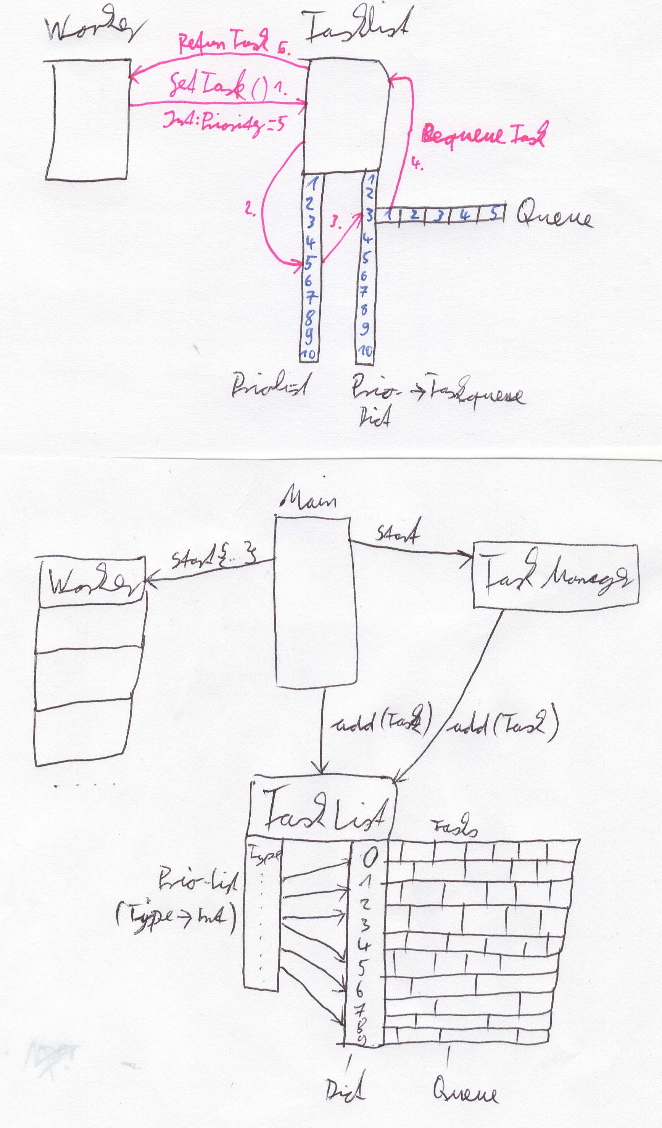 Worker
Tasklist
Return Task 5.
getTask() 1.
Int:Priority=5
Dequeue Task
4.
2.
3.
1
2
3
4
5
6
7
8
9
10
1
2
3
4
5
6
7
8
9
10
1 2 3 4 5
Queue
Priolist
Prio- → Taskqueue
Dict
Main
start{..}
start
Worker
Task Manager
add(Task)
add(Task)
Task List
Type
Tasks
Prio-list
(Type → Int)
0
1
2
3
4
5
6
7
8
9
Dict
Queue